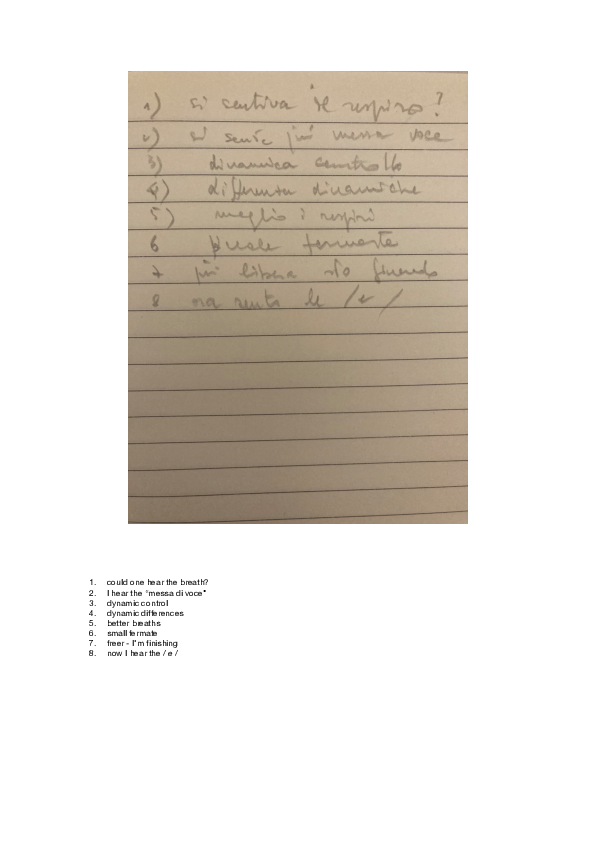 1) si sentiva il respiro?
2) si sente più messa voce
3) dinamica controllo
4) differenza dinamiche
5) meglio i respiri
6 fermate
7 più libera sto finendo
8 ora sento le /e/
1. could one hear the breath?
2. I hear the "messa di voce"
3. dynamic control
4. dynamic differences
5. better breaths
6. small fermate
7. freer - I'm finishing
8. now I hear the / e /